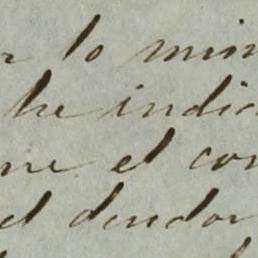 r lo min
he indic
ne el con
el deudor